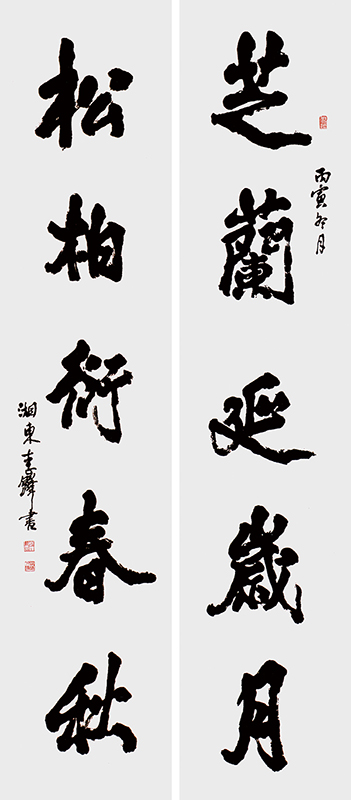 芝蘭延歲月
丙寅冬月
松柏衍春秋
湘東李鐸書